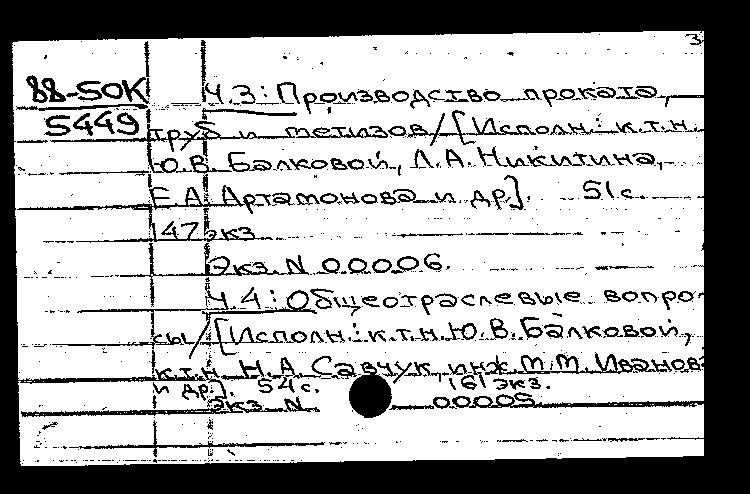 3
88-5ОК Ч.3: Производство проката,
5449 труб и метизов/[Исполн.: к.т.н.
Ю.В. Балковой, Л.А. Никитина,
Е.А. Артамонова и др]. 51с.
147 экз
Экз. N 00006.
Ч.4: Общеотраслевые вопро-
сы/[Исполн.: к.т.н. Ю.В. Балковой,
к.т.н Н.А. Савчук, инж. М.М. Иванова
и др]. 54с. 161 экз.
Экз. N 00005.